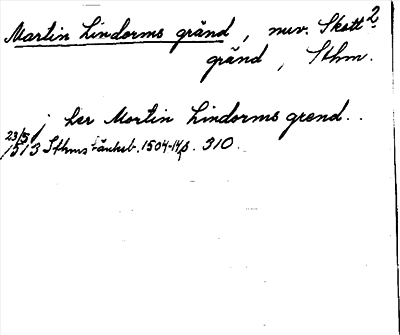 Martin Lindorms gränd, nuv. Skott 2
gränd, Sthm.
j her Mortin Lindorms grend..
23/5 1513 Sthms tänkeb. 1504-14, s. 310.